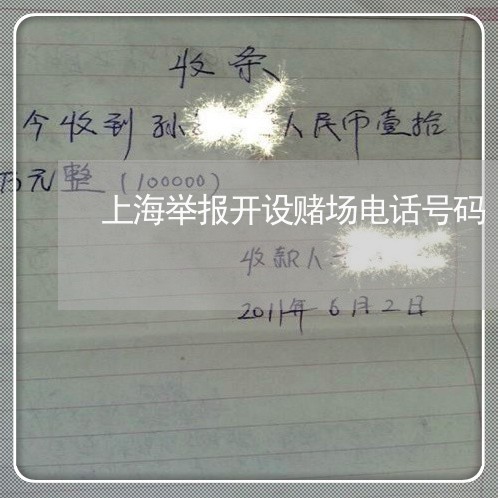 收条
今收到孙 人民币壹拾
万元整(100000)
上海举报开设赌场电话号码
收款人
2011年6月2日